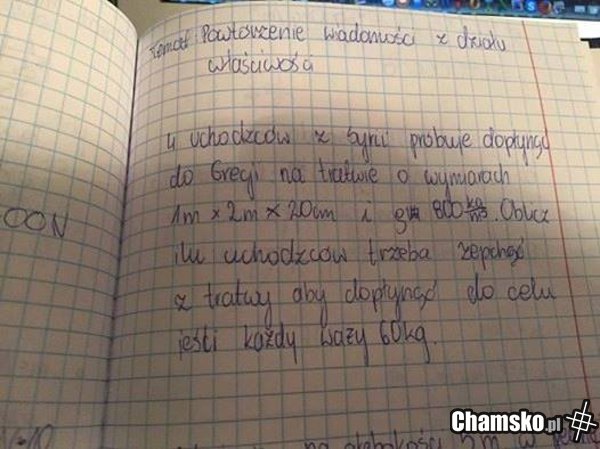 Temat: Powtórzenie wiadomości z działu
właściwości
4 uchodzców z Syrii próbuje dopłynąć
do Grecji na tratwie o wymiarach
1m × 2m × 20cm i 800 kg/m3. Oblicz
ilu uchodzców trzeba zepchąć
z tratwy aby dopłynąć do celu
jeśli każdy waży 60kg.
OON
na głębokości 5m w
Chamsko.pl